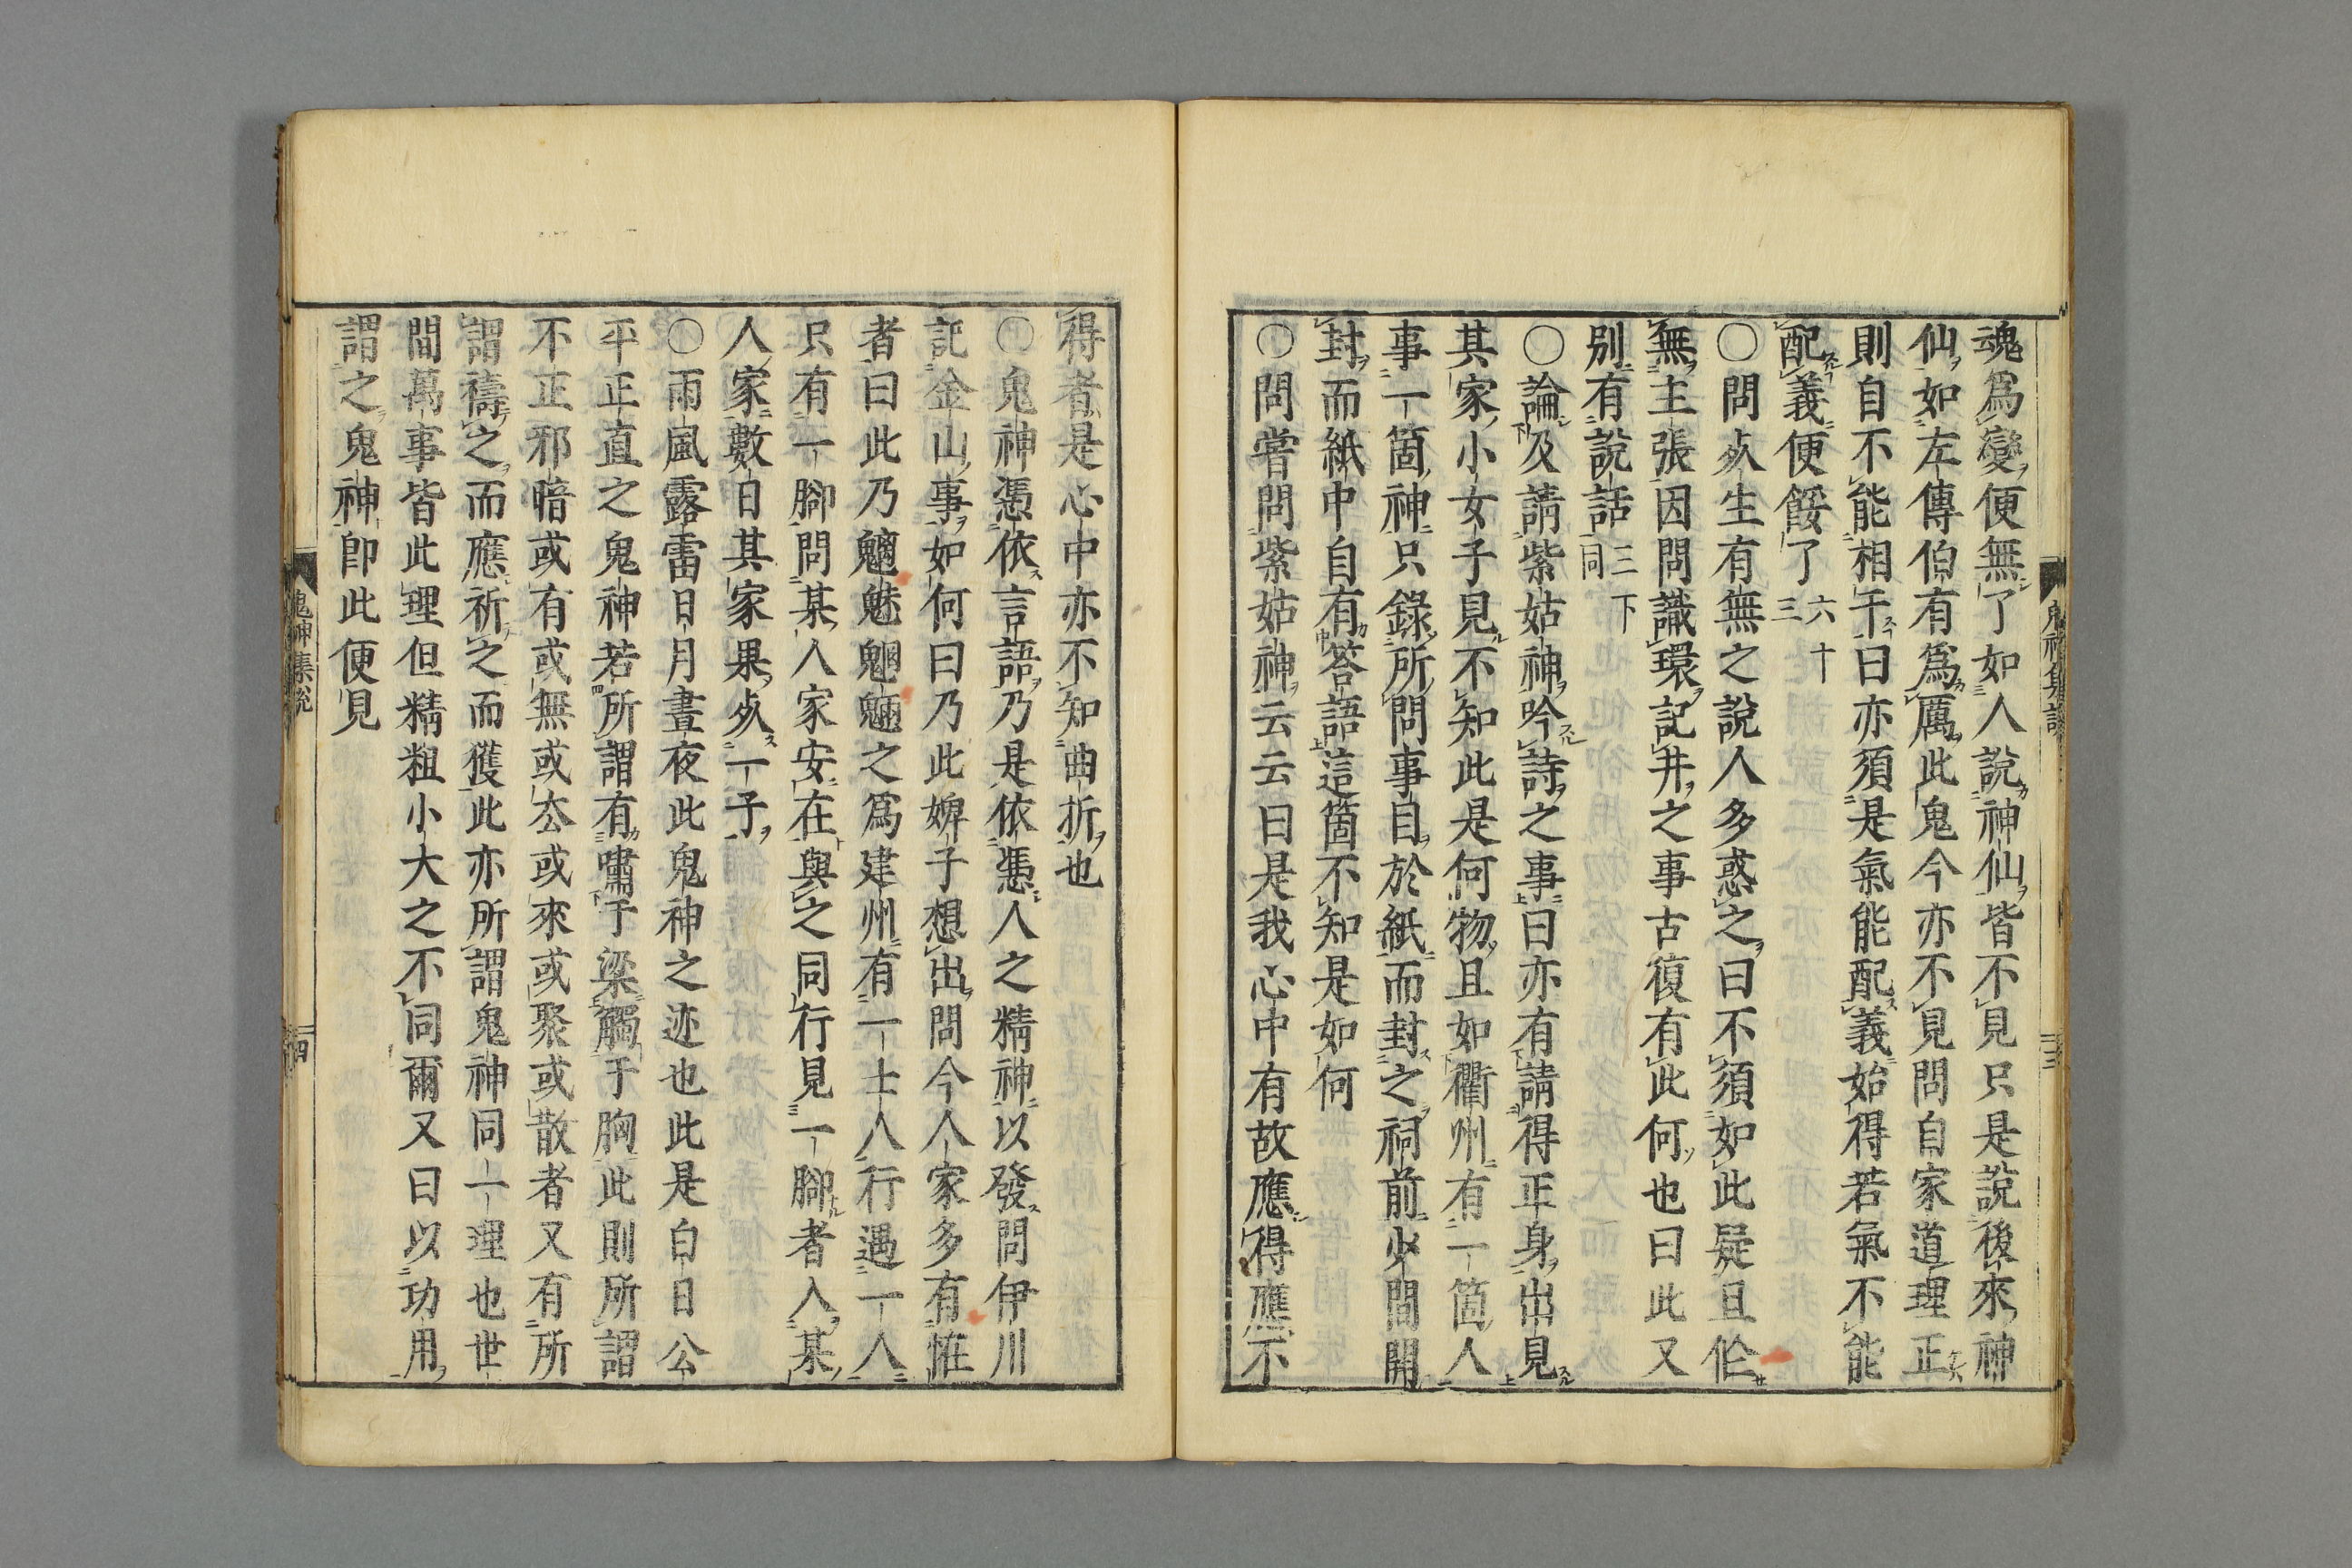 魂爲變便無了如人說神仙皆不見只是說後來神
仙如左傳伯有爲厲此鬼今亦不見問自家道理正
則自不能相干曰亦須是氣能配義始得若氣不能
配義便餒了六十三
〇問死生有無之說人多惑之曰不須如此疑且作
無主張因問識環記井之事古復有此何也曰此又
別有說話三下同
〇論及請紫姑神吟詩之事曰亦有請得正身出見
其家小女子見不知此是何物且如衢州有一箇人
事一箇神只錄所問事自於紙而封之祠前少間開
封而紙中自有答語這箇不知是如何
〇問嘗問紫姑神云云曰是我心中有故應得應不
鬼神集說
三
得者是心中亦不知曲折也
〇鬼神憑依言語乃是依憑人之精神以發問伊川
記金山事如何曰乃此婢子想出問今人家多有怪
者曰此乃魑魅魍魎之爲建州有一士人行遇一人
只有一腳問某人家安在與之同行見一腳者入某
人家數日其家果死一子
〇雨風露雷日月晝夜此鬼神之迹也此是白日公
平正直之鬼神若所謂有嘯于梁觸于胸此則所謂
不正邪暗或有或無或去或來或聚或散者又有所
謂禱之而應祈之而獲此亦所謂鬼神同一理也世
間萬事皆此理但精粗小大之不同爾又曰以功用
謂之鬼神即此便見
鬼神集說
四